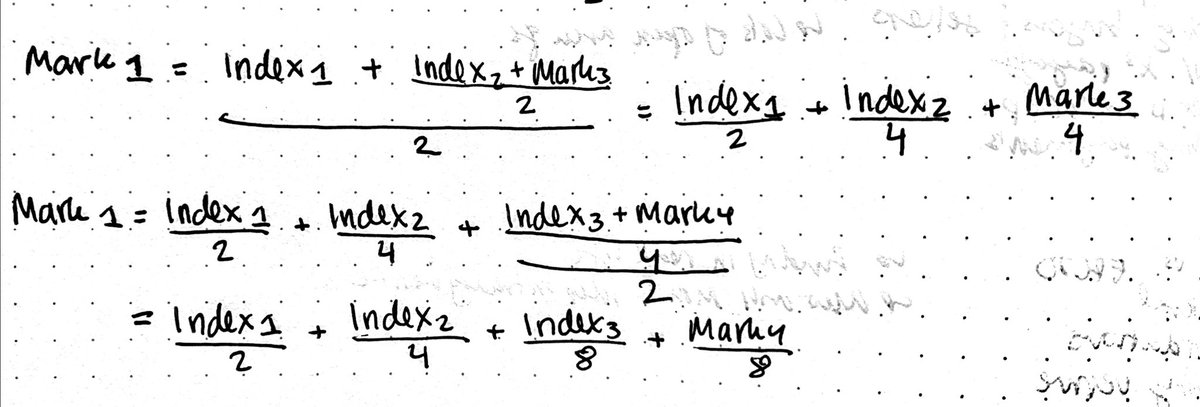 Mark 1 = (Index 1 + (Index2 + Mark3)/2)/2 = Index 1/2 + Index 2/4 + Mark 3/4
Mark 1 = Index 1/2 + Index2/4 + ((Index3 + Mark4)/4)/2
= Index 1/2 + Index2/4 + Index3/8 + Mark4/8